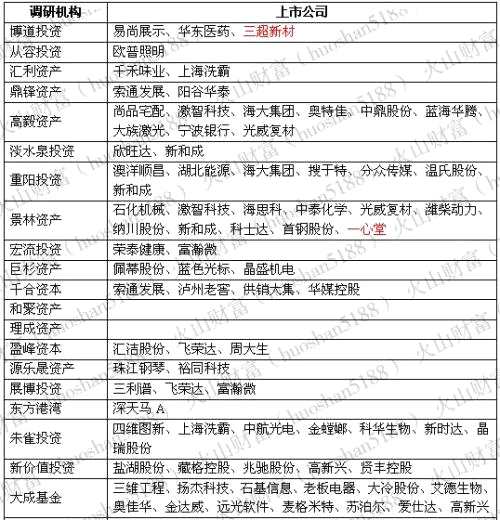 调研机构 上市公司
博道投资 易尚展示、华东医药、三超新材
从容投资 欧普照明
汇利资产 千禾味业、上海洗霸
鼎锋资产 索通发展、阳谷华泰
高毅资产 尚品宅配、激智科技、海大集团、奥特佳、中鼎股份、蓝海华腾、
大族激光、宁波银行、光威复材
淡水泉投资 欣旺达、新和成
重阳投资 澳洋顺昌、湖北能源、海大集团、搜于特、分众传媒、温氏股份、
新和成
景林资产 石化机械、激智科技、海思科、中泰化学、光威复材、潍柴动力、
纳川股份、新和成、科士达、首钢股份、一心堂
宏流投资 荣泰健康、富瀚微
巨杉资产 佩蒂股份、蓝色光标、晶盛机电
千合资本 索通发展、泸州老窖、供销大集、华媒控股
和聚资产
理成资产
盈峰资本 汇洁股份、飞荣达、周大生
源乐晟资产 珠江钢琴、裕同科技
展博投资 三利谱、飞荣达、富瀚微
东方港湾 深天马 A
朱雀投资 四维图新、上海洗霸、中航光电、金螳螂、科华生物、新时达、晶
瑞股份
新价值投资 盐湖股份、藏格控股、兆驰股份、高新兴、贤丰控股
大成基金 三维工程、扬杰科技、石基信息、老板电器、大冷股份、艾德生物、
奥佳华、金达威、远光软件、麦格米特、苏泊尔、爱仕达、高新兴
火山财富（huoshan5188）